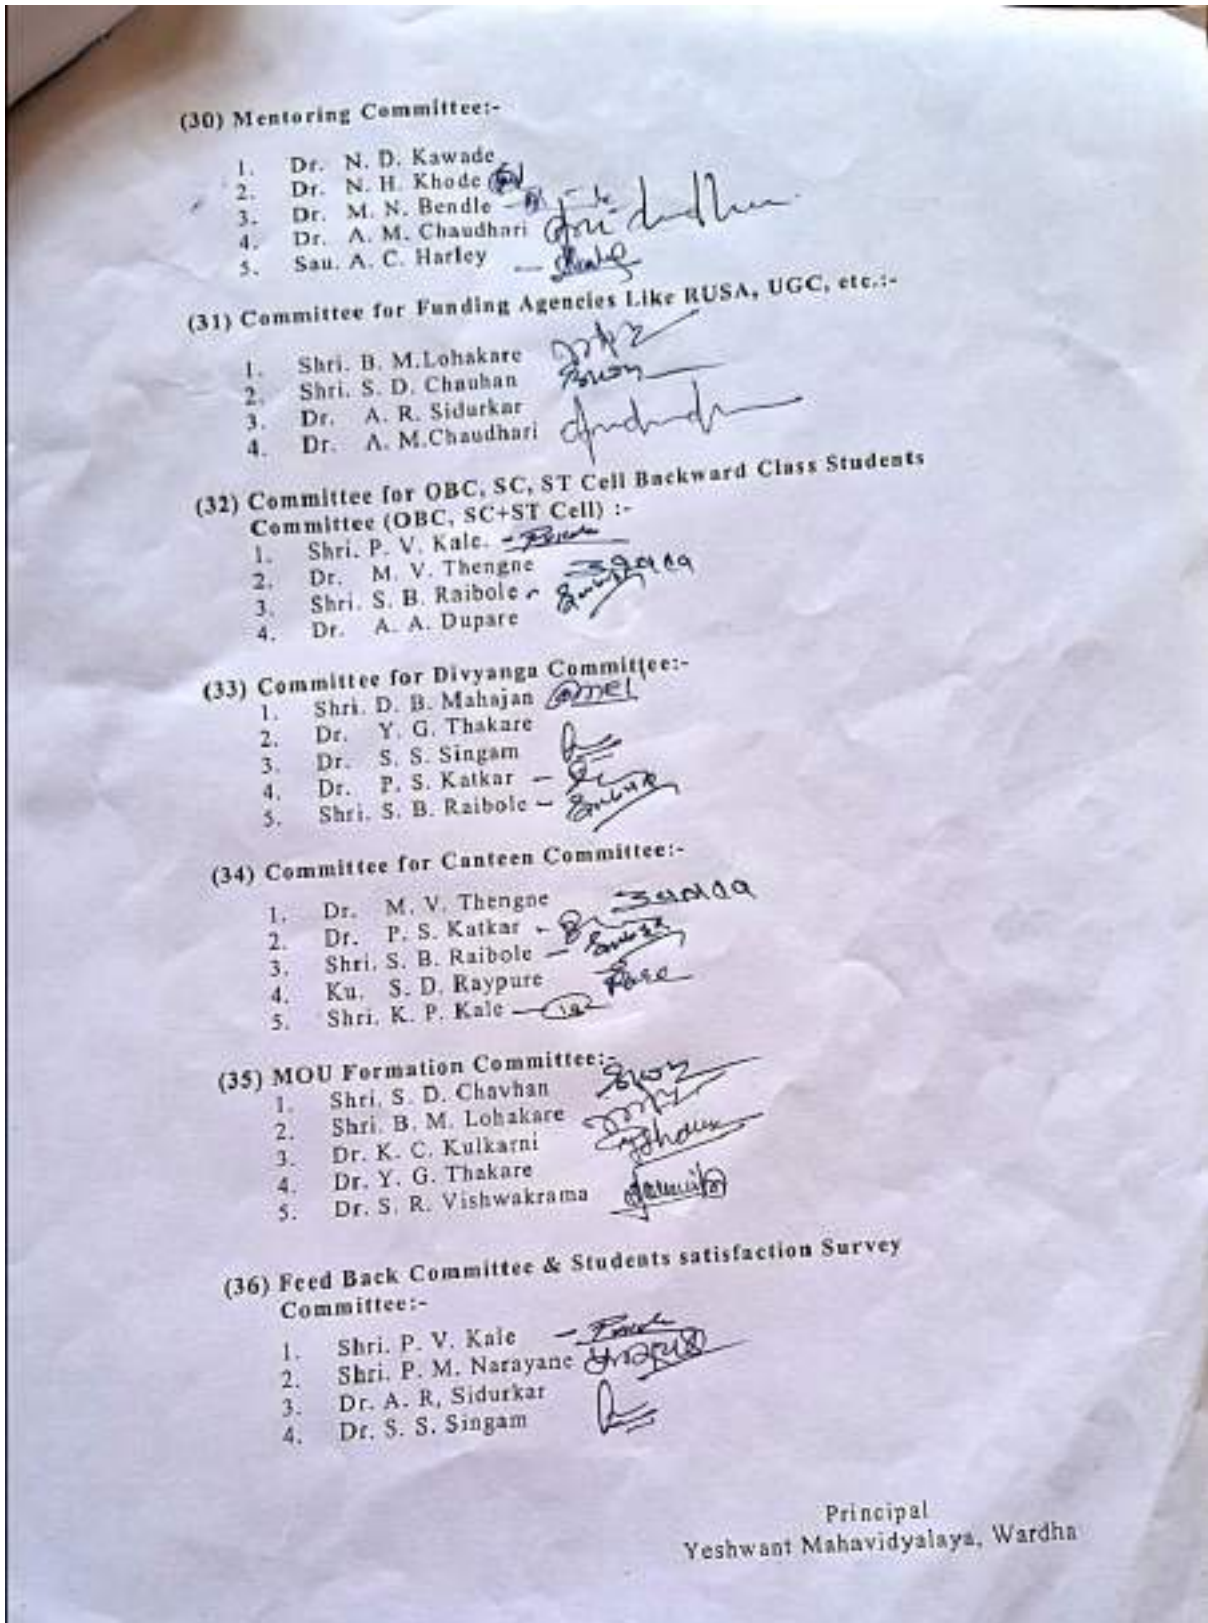 (30) Mentoring Committee:-
1. Dr. N. D. Kawade
2. Dr. N. H. Khode
3. Dr. M. N. Bendle
4. Dr. A. M. Chaudhari
5. Sau. A. C. Harley
(31) Committee for Funding Agencies Like RUSA, UGC, etc.:-
1. Shri. B. M.Lohakare
2. Shri. S. D. Chauhan
3. Dr. A. R. Sidurkar
4. Dr. A. M.Chaudhari
(32) Committee for OBC, SC, ST Cell Backward Class Students
Committee (OBC, SC+ST Cell) :-
1. Shri. P. V. Kale.
2. Dr. M. V. Thengne
3. Shri. S. B. Raibole
4. Dr. A. A. Dupare
(33) Committee for Divyanga Committee:-
1. Shri. D. B. Mahajan
2. Dr. Y. G. Thakare
3. Dr. S. S. Singam
4. Dr. P. S. Katkar
5. Shri. S. B. Raibole
(34) Committee for Canteen Committee:-
1. Dr. M. V. Thengne
2. Dr. P. S. Katkar
3. Shri. S. B. Raibole
4. Ku. S. D. Raypure
5. Shri. K. P. Kale
(35) MOU Formation Committee:-
1. Shri. S. D. Chavhan
2. Shri. B. M. Lohakare
3. Dr. K. C. Kulkarni
4. Dr. Y. G. Thakare
5. Dr. S. R. Vishwakrama
(36) Feed Back Committee & Students satisfaction Survey
Committee:-
1. Shri. P. V. Kale
2. Shri. P. M. Narayane
3. Dr. A. R, Sidurkar
4. Dr. S. S. Singam
Principal
Yeshwant Mahavidyalaya, Wardha